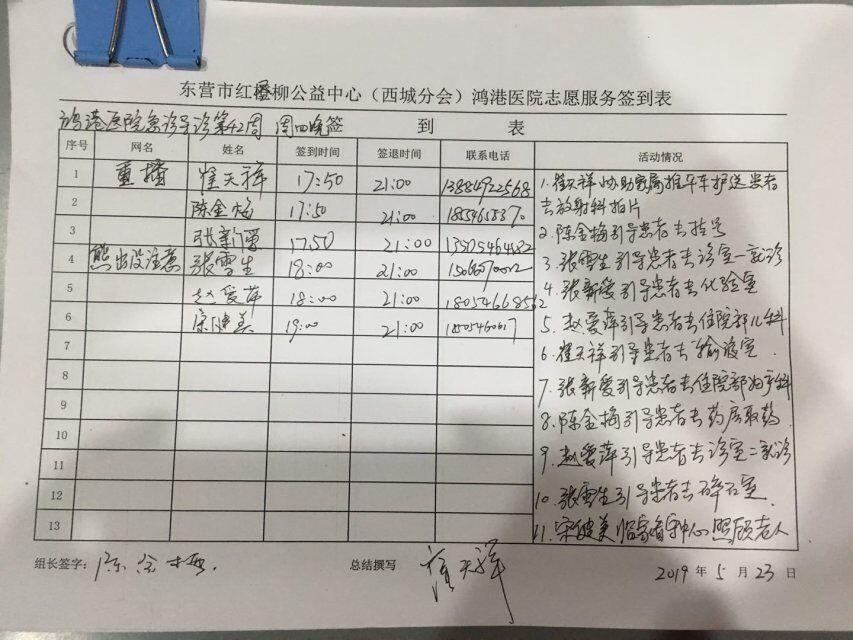 东营市红柳公益中心（西城分会）鸿港医院志愿服务签到表
鸿港医院急诊导诊第42周 周四晚签 到 表
序号 网名 姓名 签到时间 签退时间 联系电话 活动情况
1 重播 崔天祥 17:50 21:00 13884922568
2 陈金梅 17:50 21:00
3 张新爱 17:50 21:00 13505464482
4 熊出没注意 张雪生 18:00 21:00
5 赵爱萍 18:00 21:00 18054668562
6 宋健美 19:00 21:00
7
8
9
10
11
12
13
1. 崔天祥协助家属推平车护送患者
去放射科拍片
2. 陈金梅引导患者去挂号
3. 张雪生引导患者去诊室一就诊
4. 张新爱引导患者去化验室
5. 赵爱萍引导患者去住院部儿科
6. 崔天祥引导患者去输液室
7. 张新爱引导患者去住院部妇产科
8. 陈金梅引导患者去药房取药
9. 赵爱萍引导患者去诊室二就诊
10. 张雪生引导患者去碎石室
11. 宋健美临家看守中心照顾老人
组长签字： 陈金梅. 总结撰写 崔天祥 2019 年 5 月 23 日